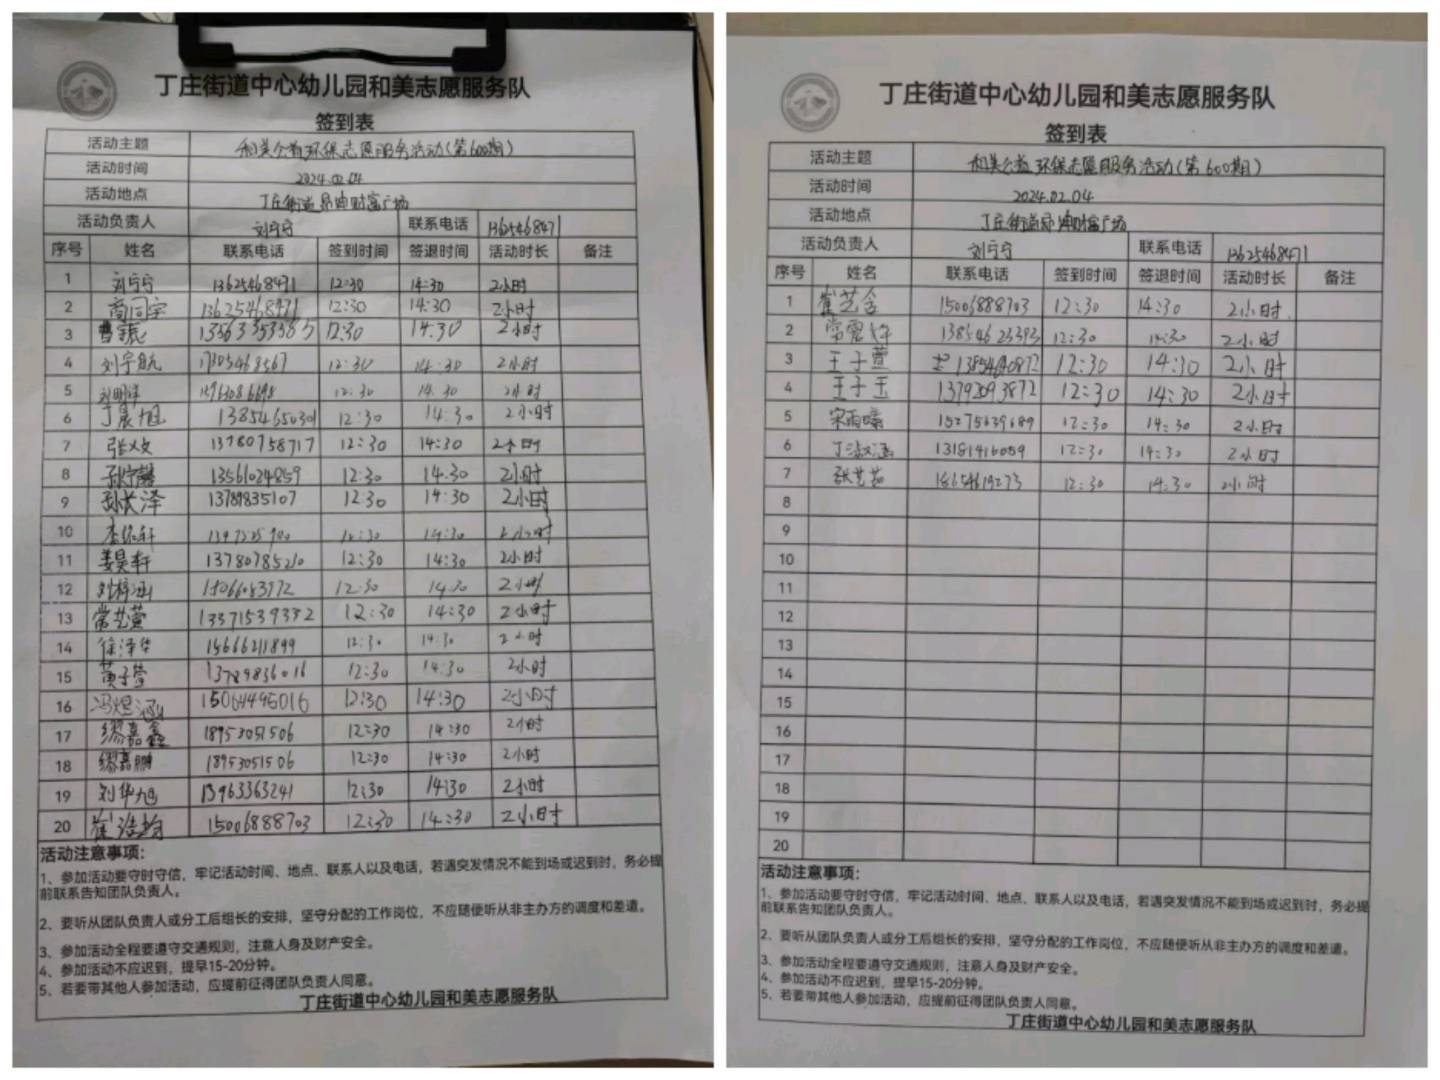 丁庄街道中心幼儿园和美志愿服务队
签到表
活动主题 和美公益环保志愿服务活动(第600期)
活动时间 2024.02.04
活动地点 丁庄街道 财富广场
活动负责人 刘宁宁 联系电话 13625468471
序号 姓名 联系电话 签到时间 签退时间 活动时长 备注
1 刘宁宁 13625468471 12:30 14:30 2小时
2 商同宇 13625468471 12:30 14:30 2小时
3 12:30 14:30 2小时
4 刘宇航 17305468567 12:30 14:30 2小时
5 12:30 14:30 2小时
6 丁晨旭 13854650301 12:30 14:30 2小时
7 13780758717 12:30 14:30 2小时
8 13561024859 12:30 14:30 2小时
9 孙长泽 13789835107 12:30 14:30 2小时
10 12:30 14:30 2小时
11 姜昊轩 13780785210 12:30 14:30 2小时
12 刘梓涵 12:30 14:30 2小时
13 常艺萱 13371539332 12:30 14:30 2小时
14 徐泽华 15666211899 12:30 14:30 2小时
15 黄子萱 13789836016 12:30 14:30 2小时
16 冯煜涵 15064495016 12:30 14:30 2小时
17 缪嘉鑫 18953051506 12:30 14:30 2小时
18 缪嘉鹏 18953051506 12:30 14:30 2小时
19 刘华旭 13963363241 12:30 14:30 2小时
20 崔浩 15006888703 12:30 14:30 2小时
活动注意事项：
1、参加活动要守时守信，牢记活动时间、地点、联系人以及电话，若遇突发情况不能到场或迟到时，务必提
前联系告知团队负责人。
2、要听从团队负责人或分工后组长的安排，坚守分配的工作岗位，不应随便听从非主办方的调度和差遣。
3、参加活动全程要遵守交通规则，注意人身及财产安全。
4、参加活动不应迟到，提早15-20分钟。
5、若要带其他人参加活动，应提前征得团队负责人同意。
丁庄街道中心幼儿园和美志愿服务队
丁庄街道中心幼儿园和美志愿服务队
签到表
活动主题 和美公益环保志愿服务活动(第600期)
活动时间 2024.02.04
活动地点 丁庄街道 财富广场
活动负责人 刘宁宁 联系电话 13625468471
序号 姓名 联系电话 签到时间 签退时间 活动时长 备注
1 崔艺含 15006888703 12:30 14:30 2小时
2 13854623393 12:30 14:30 2小时
3 王子萱 12:30 14:30 2小时
4 王子玉 13792093872 12:30 14:30 2小时
5 宋雨 15275639689 12:30 14:30 2小时
6 丁淑涵 13181916059 12:30 14:30 2小时
7 张艺 18654619273 12:30 14:30 2小时
8
9
10
11
12
13
14
15
16
17
18
19
20
活动注意事项：
1、参加活动要守时守信，牢记活动时间、地点、联系人以及电话，若遇突发情况不能到场或迟到时，务必提
前联系告知团队负责人。
2、要听从团队负责人或分工后组长的安排，坚守分配的工作岗位，不应随便听从非主办方的调度和差遣。
3、参加活动全程要遵守交通规则，注意人身及财产安全。
4、参加活动不应迟到，提早15-20分钟。
5、若要带其他人参加活动，应提前征得团队负责人同意。
丁庄街道中心幼儿园和美志愿服务队